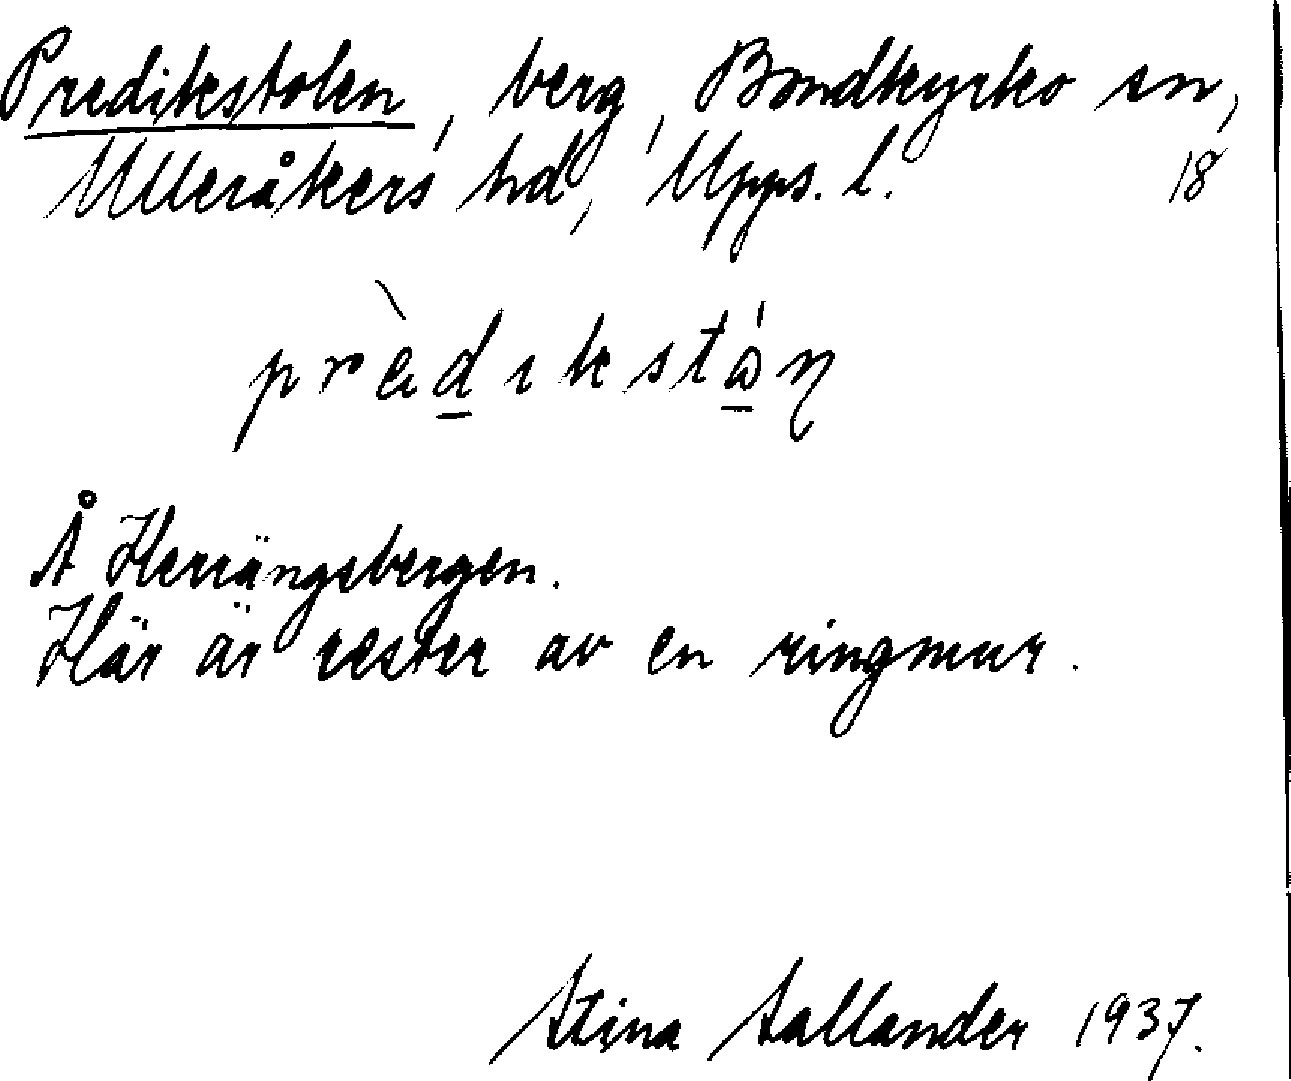 Predikstolen, berg, Bondkyrko sn,
Ulleråkers hd, Upps. l. 18
Å Herrängsbergen.
Här är rester av en ringmur.
Stina Sallander 1937.